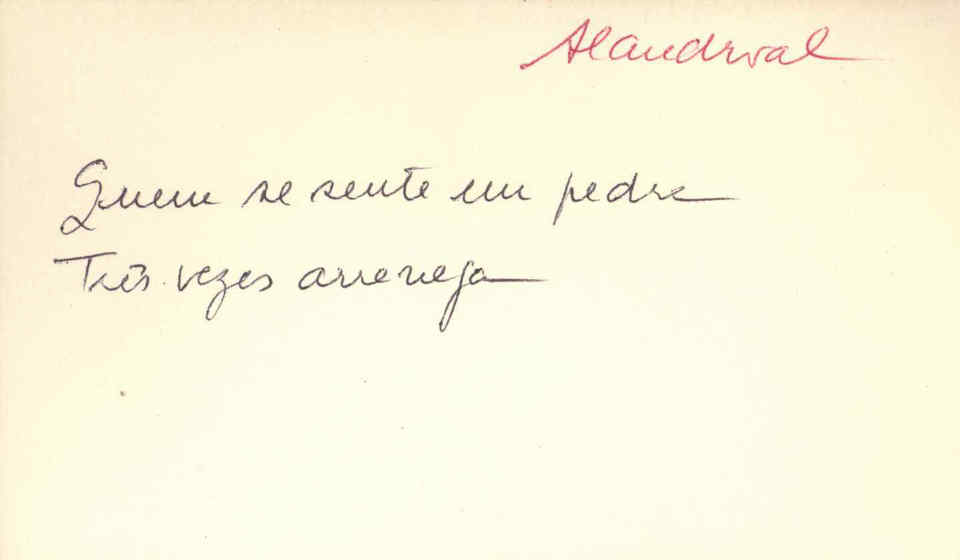 Alandroal
Quem se sente em pedra
Três vezes arrenega